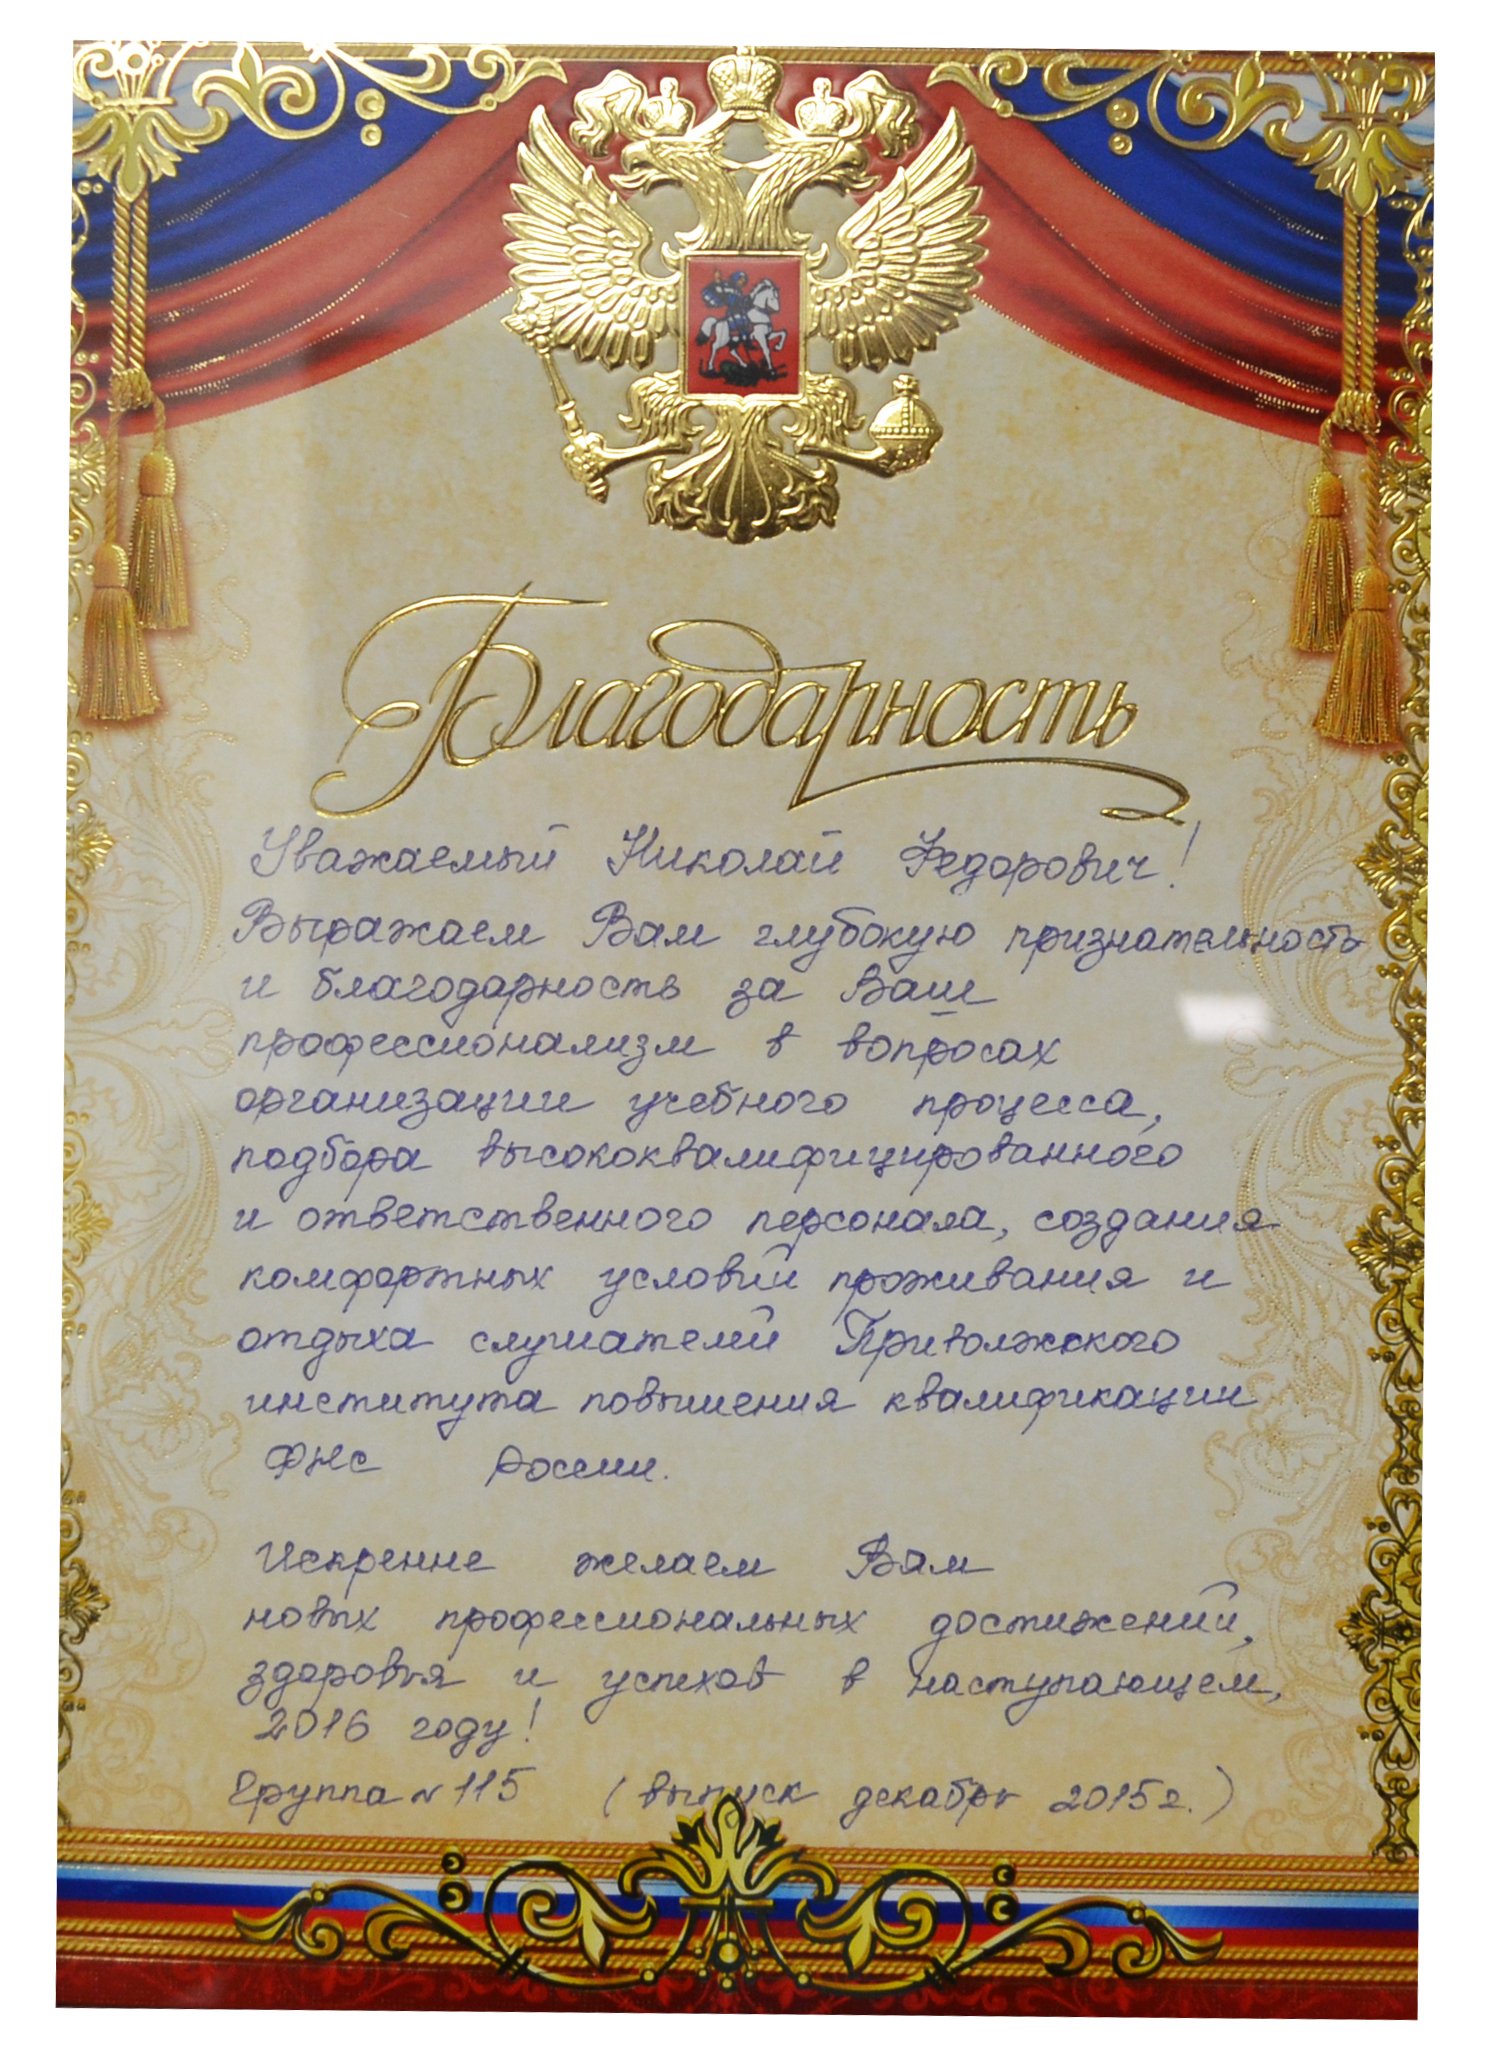 Благодарность
Уважаемый Николай Федорович!
Выражаем Вам глубокую признательность
и благодарность за Ваш
профессионализм в вопросах
организации учебного процесса,
подбора высококвалифицированного
и ответственного персонала, создания
комфортных условий проживания и
отдыха слушателей Приволжского
института повышения квалификации
ФНС России.
Искренне желаем Вам
новых профессиональных достижений,
здоровья и успехов в наступающем,
2016 году!
Группа № 115 (выпуск декабрь 2015г.)